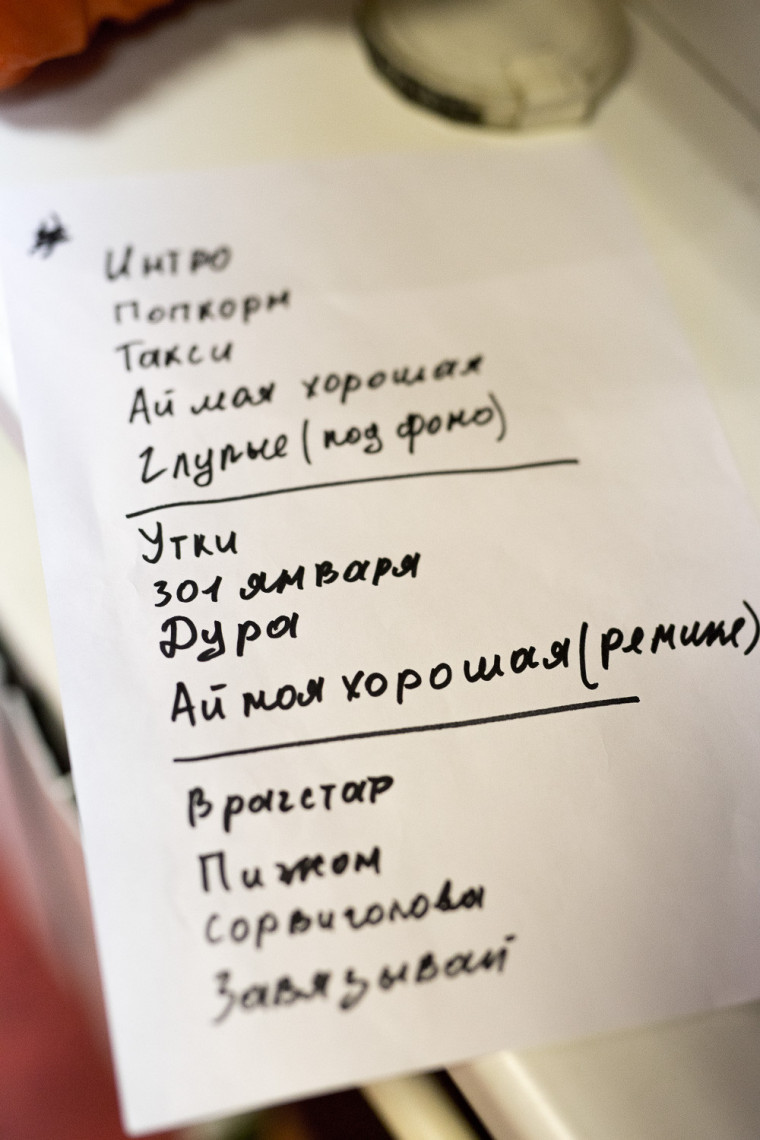 Интро
Попкорн
Такси
Ай мая хорошая
Глупые (под фоно)
Утки
301 января
Дура
Ай моя хорошая (ремикс)
Врагстар
Пижом
Сорвиголовы
Завязывай